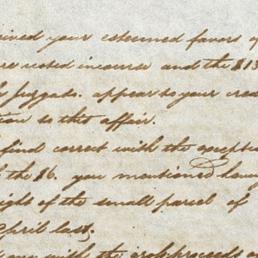 ived your esteemed favors of
are noted incourse and the $13
appear to your cred
tion to this affair.
find correct with the excepti
the $6. you mentioned havi
ight of the small parcel of
April last,
with the